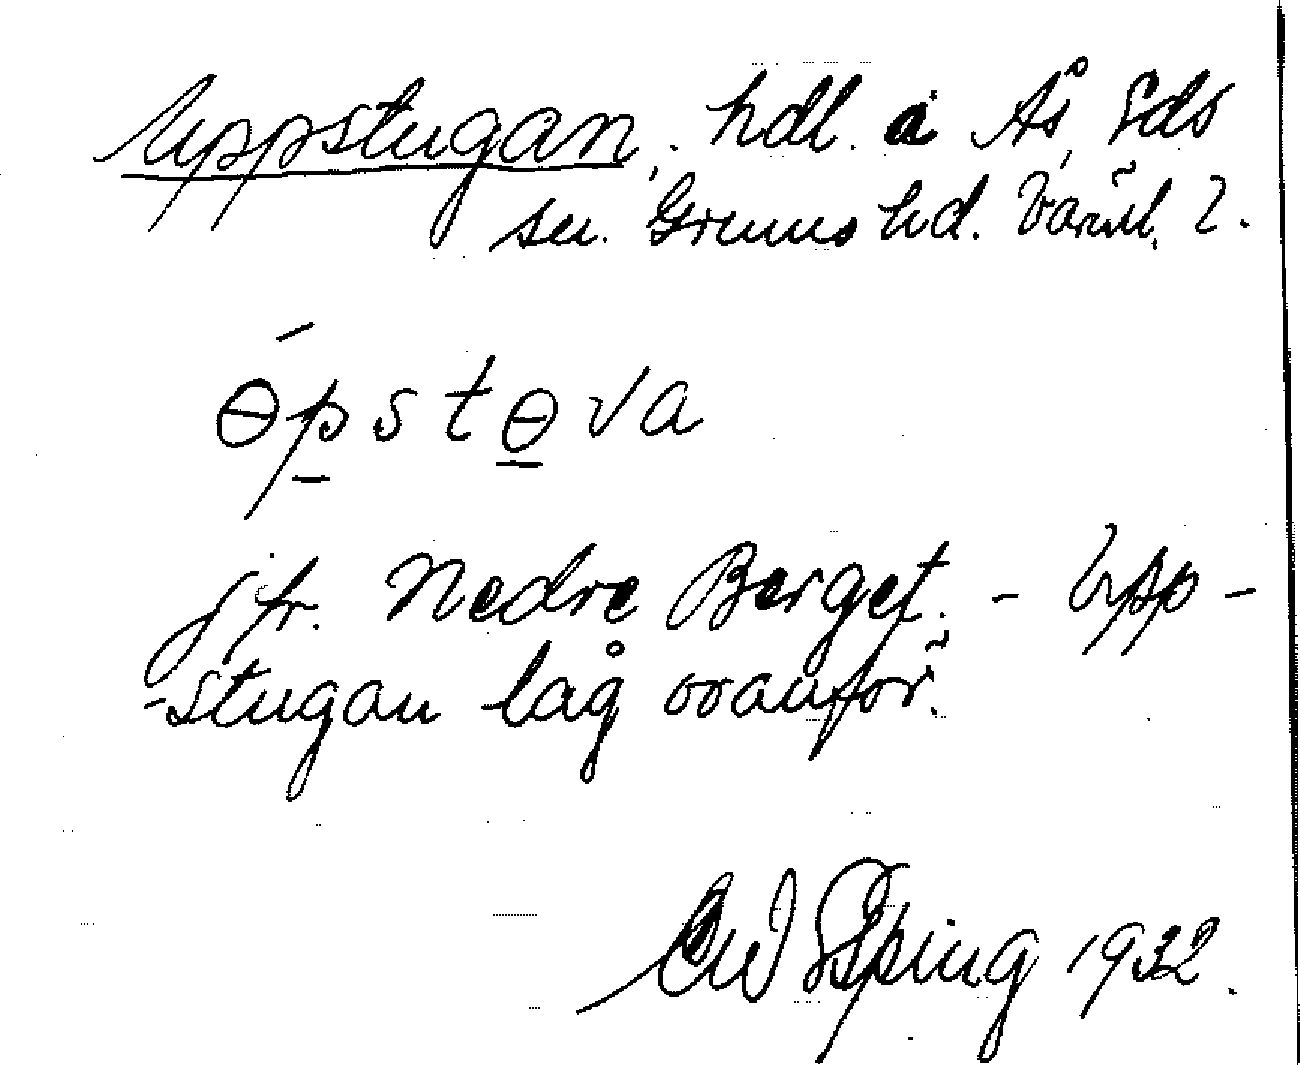 Uppstugan, hdl. å Ås, Eds
sn. Grums hd. Värml. 2.
ɵ́pstɵva
jfr. Nedre Berget. - Upp-
-stugan låg ovanför.
Esping 1932.